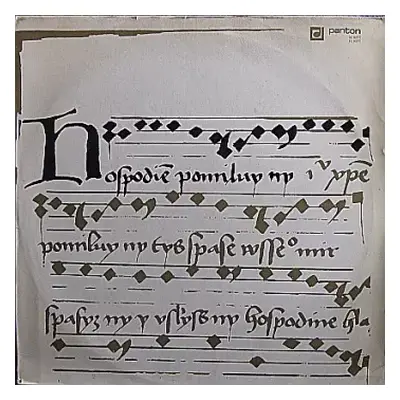 panton
Hospodiē pomiluy ny iᵛ xpē
pomiluy ny tys spase wsseº mir
spasyz ny y uslyss ny hospodine hla